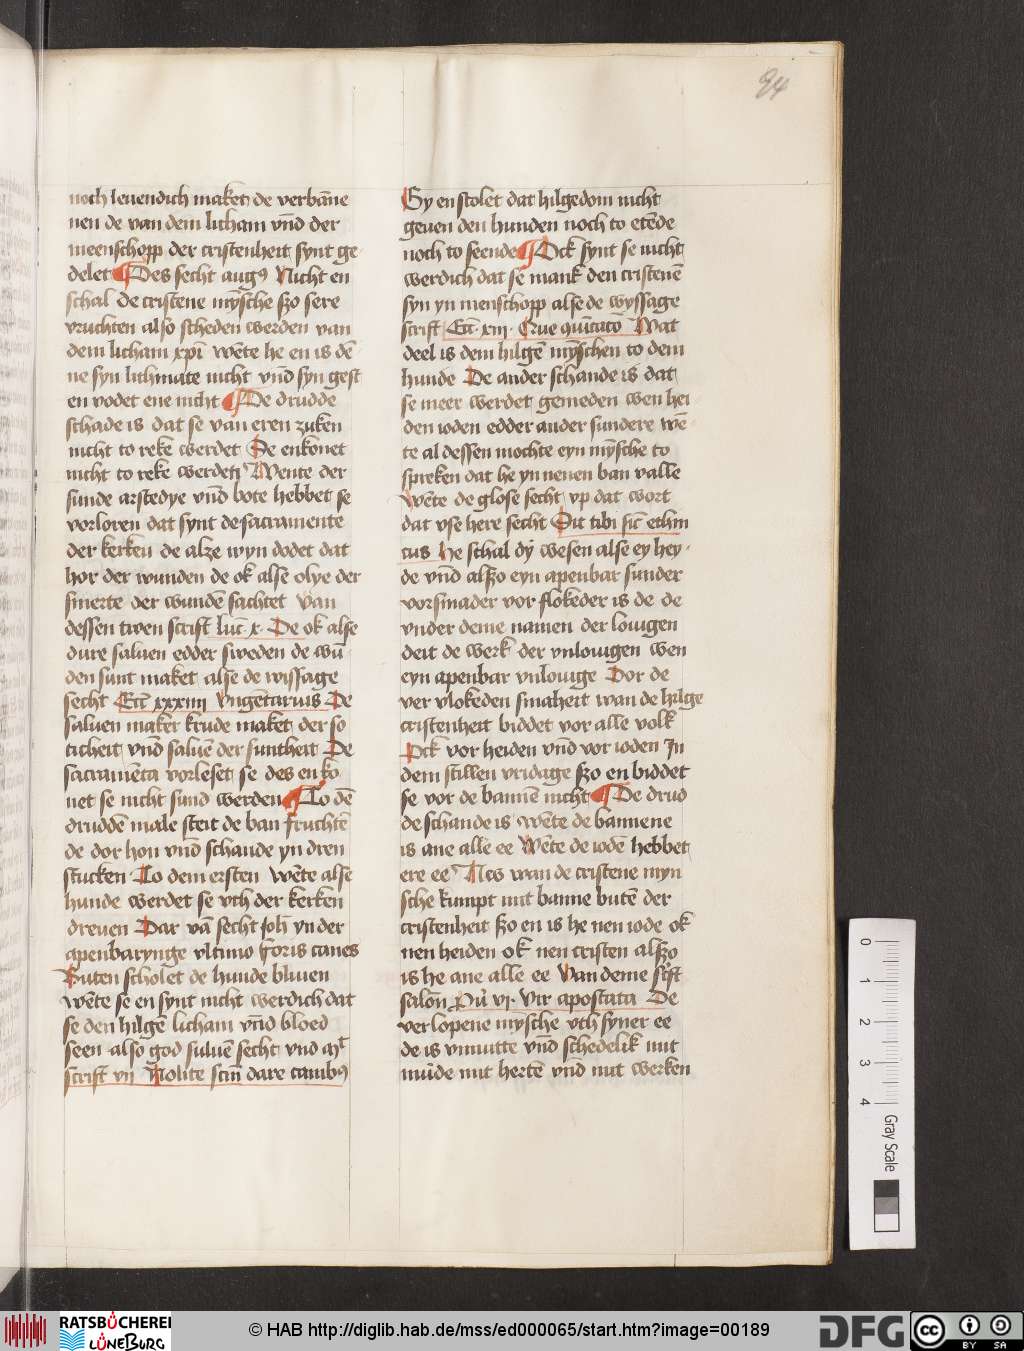 94
noch leuendich maket de verbāne
nen de van dem licham vn̄d der
meenschopp der cristenheit synt ge
delet ¶ Des secht augꝰ Nicht en
schal de cristene mȳsche szo sere
vruchten also scheden werden van
dem licham xpi wēte he en is dē
ne syn lichmate nicht vn̄d syn gest
en vodet ene nicht ¶ De drudde
schade is dat se van eren zuken
nicht to reke werdet De enkonet
nicht to reke werden Wente der
sunde arstedye vn̄d bote hebbet se
vorloren dat synt de sacramente
der kerken de alze wyn dodet dat
hor der wunden de ok alse olye der
smerte der wundē sachtet van
dessen twen scrift luc̄ x De ok alse
dure saluen edder sweden de wū
den sunt maket alse de wissage
secht Ecc̄ xxxiiii Vngētarius De
saluen maker krude maket der so
ticheit vn̄d saluē der suntheit De
sacramēta vorleset se des en ko
net se nicht sund werden ¶ To dē
druddē male steit de ban fruchtē
de dor hon vn̄d schande yn dren
stucken To dem ersten wēte alse
hunde werdet se vth der kerken
dreuen Dar vā secht Joh̄ yn der
apenbarynge vltimo Foris canes
Buten scholet de hunde bliuen
wēte se en synt nicht werdich dat
se den hilgē licham vn̄d bloed
seen also god suluē secht vnd
scrift vii Nolite scm̄ dare canibꝰ
Gy en scolet dat hilgedom nicht
geuen den hunden noch to etēde
noch to seende ¶ Ock synt se nicht
werdich dat se mank den cristenē
syn yn menschopp alse de wyssage
scrift Ecc̄ xiii Que Wat
deel is dem hilgē mȳschen to dem
hunde De ander schande is dat
se meer werdet gemeden wen hei
den ioden edder ander sundere wē
te al dessen mochte eyn mȳsche to
spreken dat he yn nenen ban valle
Wēte de glose secht vp dat wort
dat vse here secht Sit tibi sic̄ ethni
cus He schal dȳ wesen alse ey hey
de vn̄d alszo eyn apenbar sunder
vorsmader vor flokeder is de de
vnder deme namen der louigen
deit de werk der vnlouigen wen
eyn apenbar vnlouige Dor de
ver vlokeden smaheit wan de hilge
cristenheit biddet vor alle volk
Ock vor heiden vn̄d vor ioden In
dem stillen vridage szo en biddet
se vor de bannē nicht ¶ De drud
de schande is wēte de bannene
is ane alle ee Wēte de iodē hebbet
ere ee Als wan de cristene myn
sche kumpt mit banne butē der
cristenheit szo en is he nen iode ok
nen heiden ok nen cristen alszo
is he ane alle ee Van deme
salōn vi Vir apostata De
verlopene mysche vth syner ee
de is vnnutte vn̄d schedelik mit
mūde mit hertē vn̄d mit werken
0
1
2
3
4
Gray Scale
RATSBÜCHEREI
LÜNEBURG
© HAB http://diglib.hab.de/mss/ed000065/start.htm?image=00189
DFG
cc
BY SA